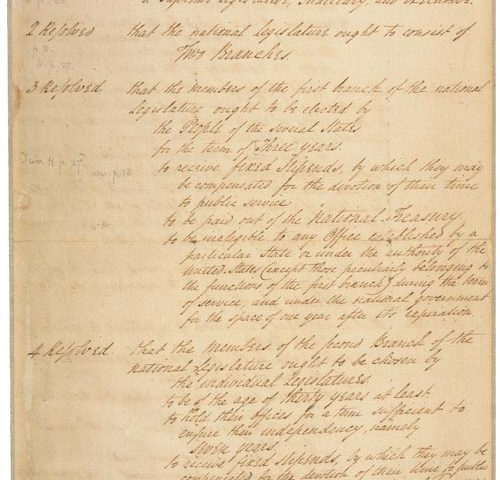 a Supreme Legislative, Judiciary, and executive.
2 Resolved. that the national legislature ought to consist of
Two Branches.
3 Resolved that the members of the first branch of the national
legislature ought to be elected by
the People of the several States
for the term of Three years.
to receive fixed Stipends, by which they may
be compensated for the devotion of their time
to public service
to be paid out of the National Treasury.
to be ineligible to any Office established by a
particular State or under the authority of the
United States (except those peculiarly belonging to
the functions of the first branch) during the term
of service, and under the national government
for the space of one year after its expiration.
4 Resolved. that the members of the second Branch of the
national Legislature ought to be chosen by
the individual Legislatures.
to be of the age of thirty years at least.
to hold their offices for a time sufficient to
ensure their independency, namely
seven years,
to receive fixed Stipends, by which they may be
compensated for the devotion of their time to public